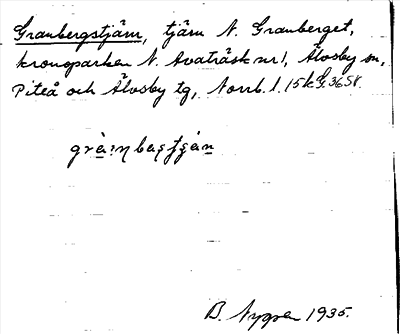 Granbergstjärn, tjärn N. Granberget,
kronoparken N. Avaträsk nr 1, Älvsby sn,
Piteå och Älvsby tg, Norrb. l. 15 k
B. Nygren 1935.